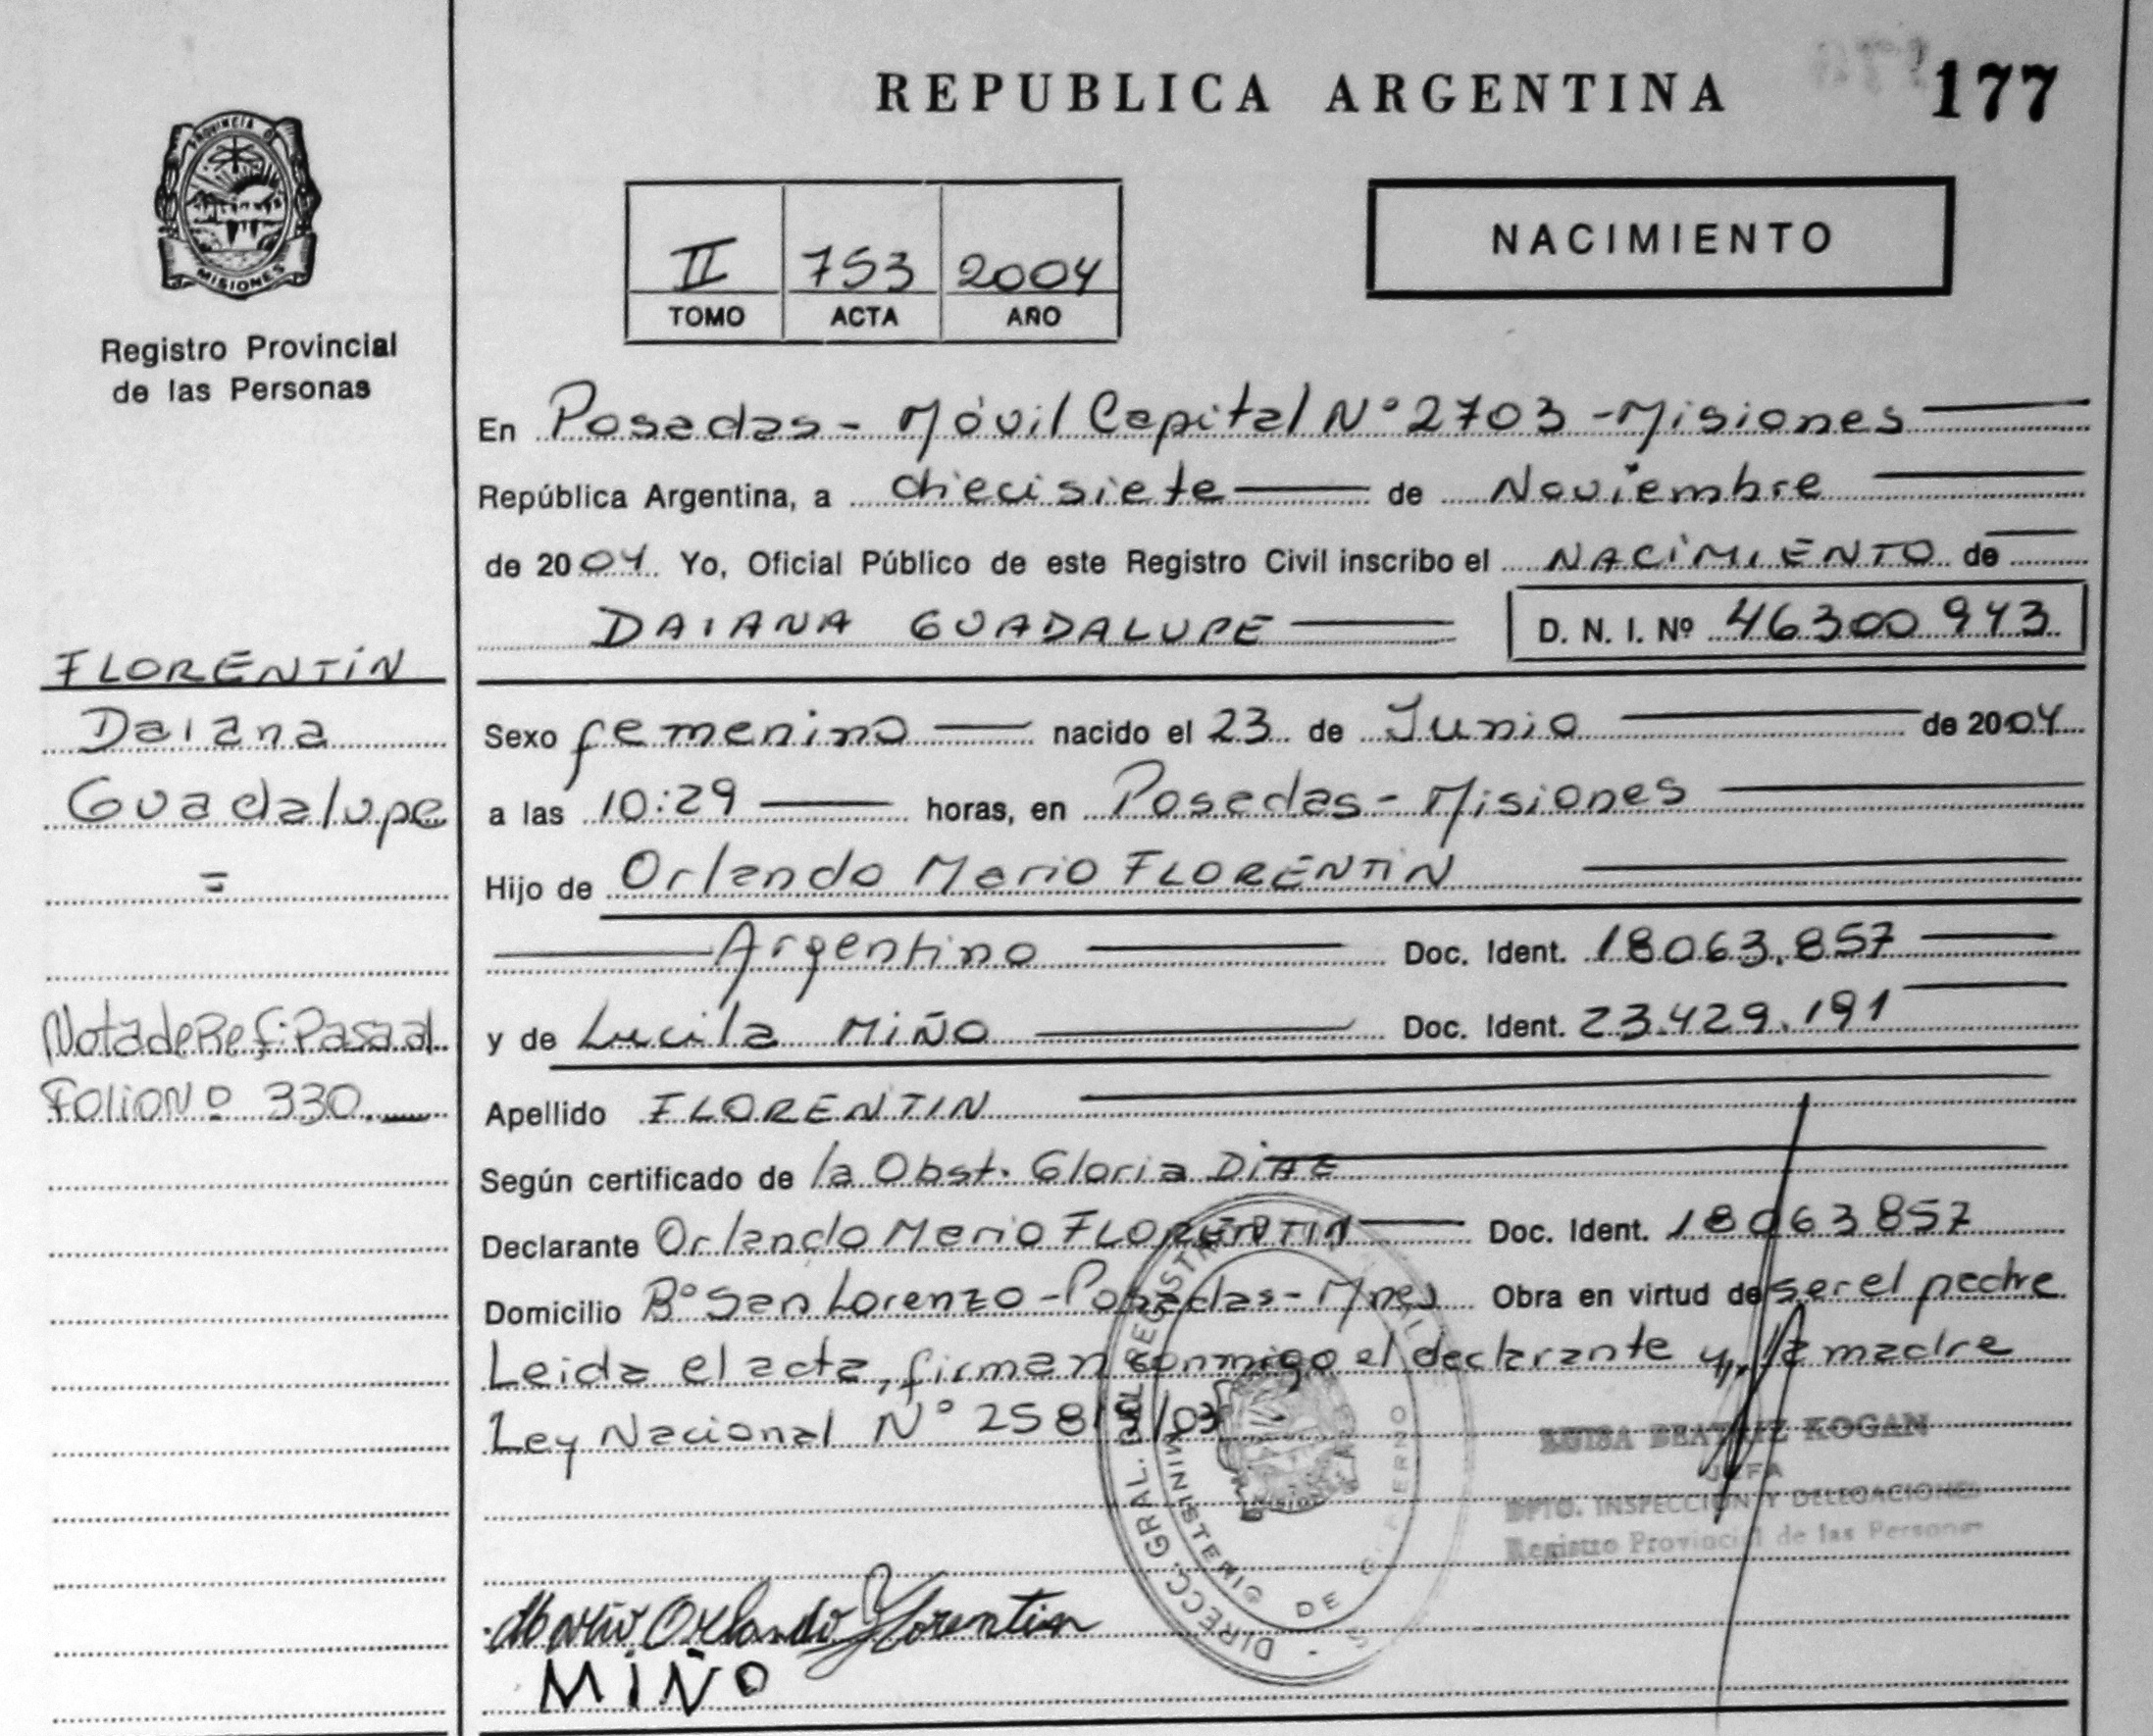 REPUBLICA ARGENTINA 177
PROVINCIA DE
MISIONES
Registro Provincial
de las Personas
II 753 2004
TOMO ACTA AÑO
NACIMIENTO
En Posadas - Móvil Capital N° 2703 - Misiones
República Argentina, a diecisiete de Noviembre
de 2004. Yo, Oficial Público de este Registro Civil inscribo el NACIMIENTO de
DAIANA GUADALUPE D. N. I. Nº 46300943
FLORENTIN
Daiana
Guadalupe
=
Nota de Ref: Pasa al
Folio Nº 330
Sexo femenino nacido el 23 de Junio de 2004
a las 10:29 horas, en Posadas - Misiones
Hijo de Orlando Mario FLORENTIN
Argentino Doc. Ident. 18063.857
y de Lucila MIÑO Doc. Ident. 23.429.191
Apellido FLORENTIN
Según certificado de la Obst. Gloria
Declarante Orlando Mario FLORENTIN Doc. Ident. 18063857
Domicilio B° San Lorenzo - Posadas - Mnes Obra en virtud de ser el padre
Leida el acta, firman conmigo el declarante y la madre
Ley Nacional N° 25819/03
LUISA BEATRIZ KOGAN
JEFA
DPTO. INSPECCION Y DELEGACIONES
Registro Provincial de las Personas
DIRECC. GRAL. DEL REGISTRO
MINISTERIO DE GOBIERNO
Mario Orlando Florentin
MIÑO